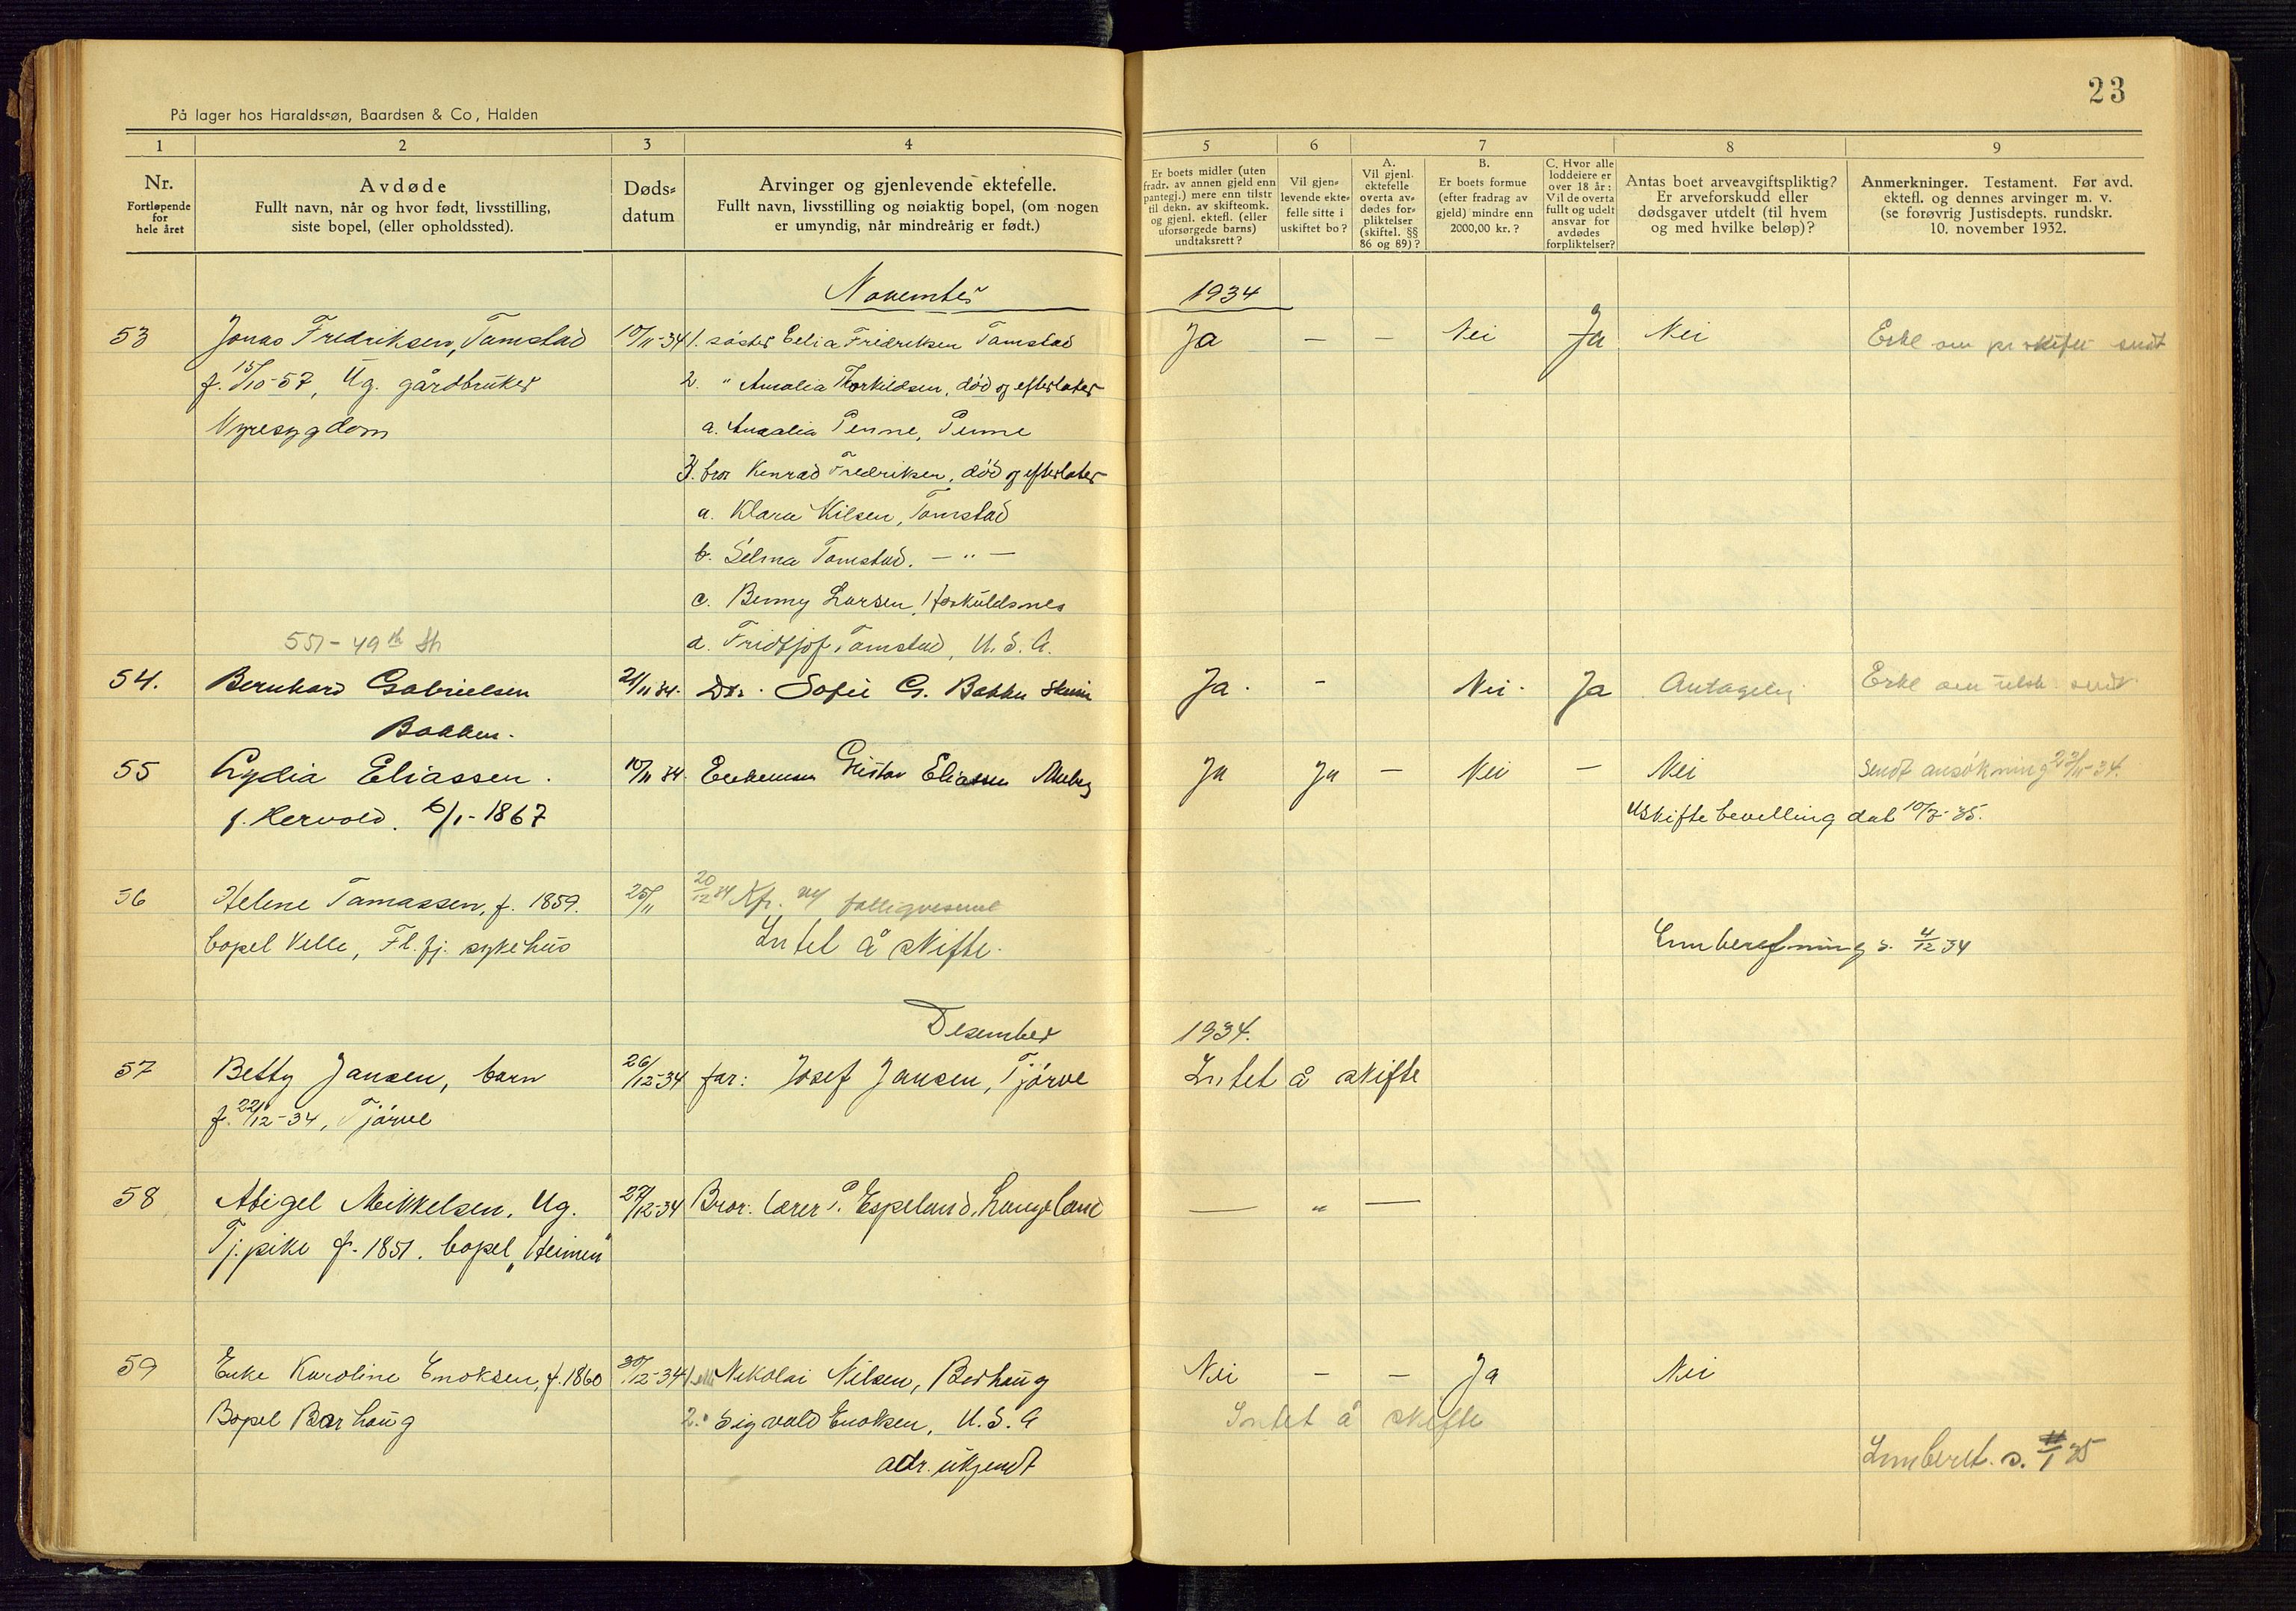 23
På lager hos Haraldssøn, Baardsen & Co, Halden
1 2 3 4 5 6 7 8 9
Nr.
Fortløpende
for
hele året
Avdøde
Fullt navn, når og hvor født, livsstilling,
siste bopel, (eller opholdssted).
Døds-
datum
Arvinger og gjenlevende ektefelle.
Fullt navn, livsstilling og nøiaktig bopel, (om nogen
er umyndig, når mindreårig er født.)
Er boets midler (uten
fradr. av annen gjeld enn
pantegj.) mere enn tilstr
til dekn. av skifteomk.
og gjenl. ektefl. (eller
uforsørgede barns)
undtaksrett?
Vil gjen-
levende ekte-
felle sitte i
uskiftet bo?
A.
Vil gjenl.
ektefelle
overta av-
dødes for-
pliktelser
(skiftel. §§
86 og 89)?
B.
Er boets formue
(efter fradrag av
gjeld) mindre enn
2000,00 kr.?
C. Hvor alle
loddeiere er
over 18 år:
Vil de overta
fullt og udelt
ansvar for
avdødes
forpliktelser?
Antas boet arveavgiftspliktig?
Er arveforskudd eller
dødsgaver utdelt (til hvem
og med hvilke beløp)?
Anmerkninger. Testament. Før avd.
ektefl. og dennes arvinger m. v.
(se forøvrig Justisdepts. rundskr.
10. november 1932.
November 1934
53 Jonas Fredriksen, Tamstad 10/11-34 1. søster Celia Fredriksen Tamstad Ja — — Nei Ja Nei Erkl om pr skifte sendt
f. 15/10-57, Ug. gårdbruker 2. " Amalia Torkildsen, død og efterlater
Nyresygdom a. Amalia Penne, Penne
3. bror Konrad Fredriksen, død og efterlater
a. Klara Nilsen, Tamstad
b. Selma Tamstad. — " —
c. Benny Larsen, Hoskuldsnes
551-49th St d. Fridtjof Tamstad, U.S.A.
54. Bernhard Gabrielsen 21/11 34. Dtr. Sofie G. Bakken Ja. - Nei. Ja Antagelig Erkl om sendt
Bakken.
55 Lydia Eliassen. 10/11 34. Enkemann Gustav Eliassen Ja Ja — Nei — Nei Sendt ansøkning 23/11-34.
f. Hervold. 6/1-1867 Uskiftebevilling dat 10/3-35.
56 Helene Tamassen, f. 1859. 25/11 20/12 34 Kfr. fattigvesenet
bopel Velle, Fl. fj. sykehus Intet å skifte. Innberetning s. 4/12 34
Desember 1934.
57 Betty Jansen, barn 26/12-34 far: Josef Jansen, Tjørve Intet å skifte
f. 22/12-34, Tjørve
58 Abigel Mikkelsen, Ug. 27/12-34 Bror. lærer P. Espeland, Langeland — " —
Tj.pike f. 1851. bopel „Heimen"
59 Enke Karoline Enoksen, f. 1860 30/12-34 1. Nikolai Nilsen, Borhaug Nei — — Ja Nei
Bopel Borhaug 2. Sigvald Enoksen, U.S.A Intet å skifte
adr. ukjendt
Innberet. s. 11/1 35